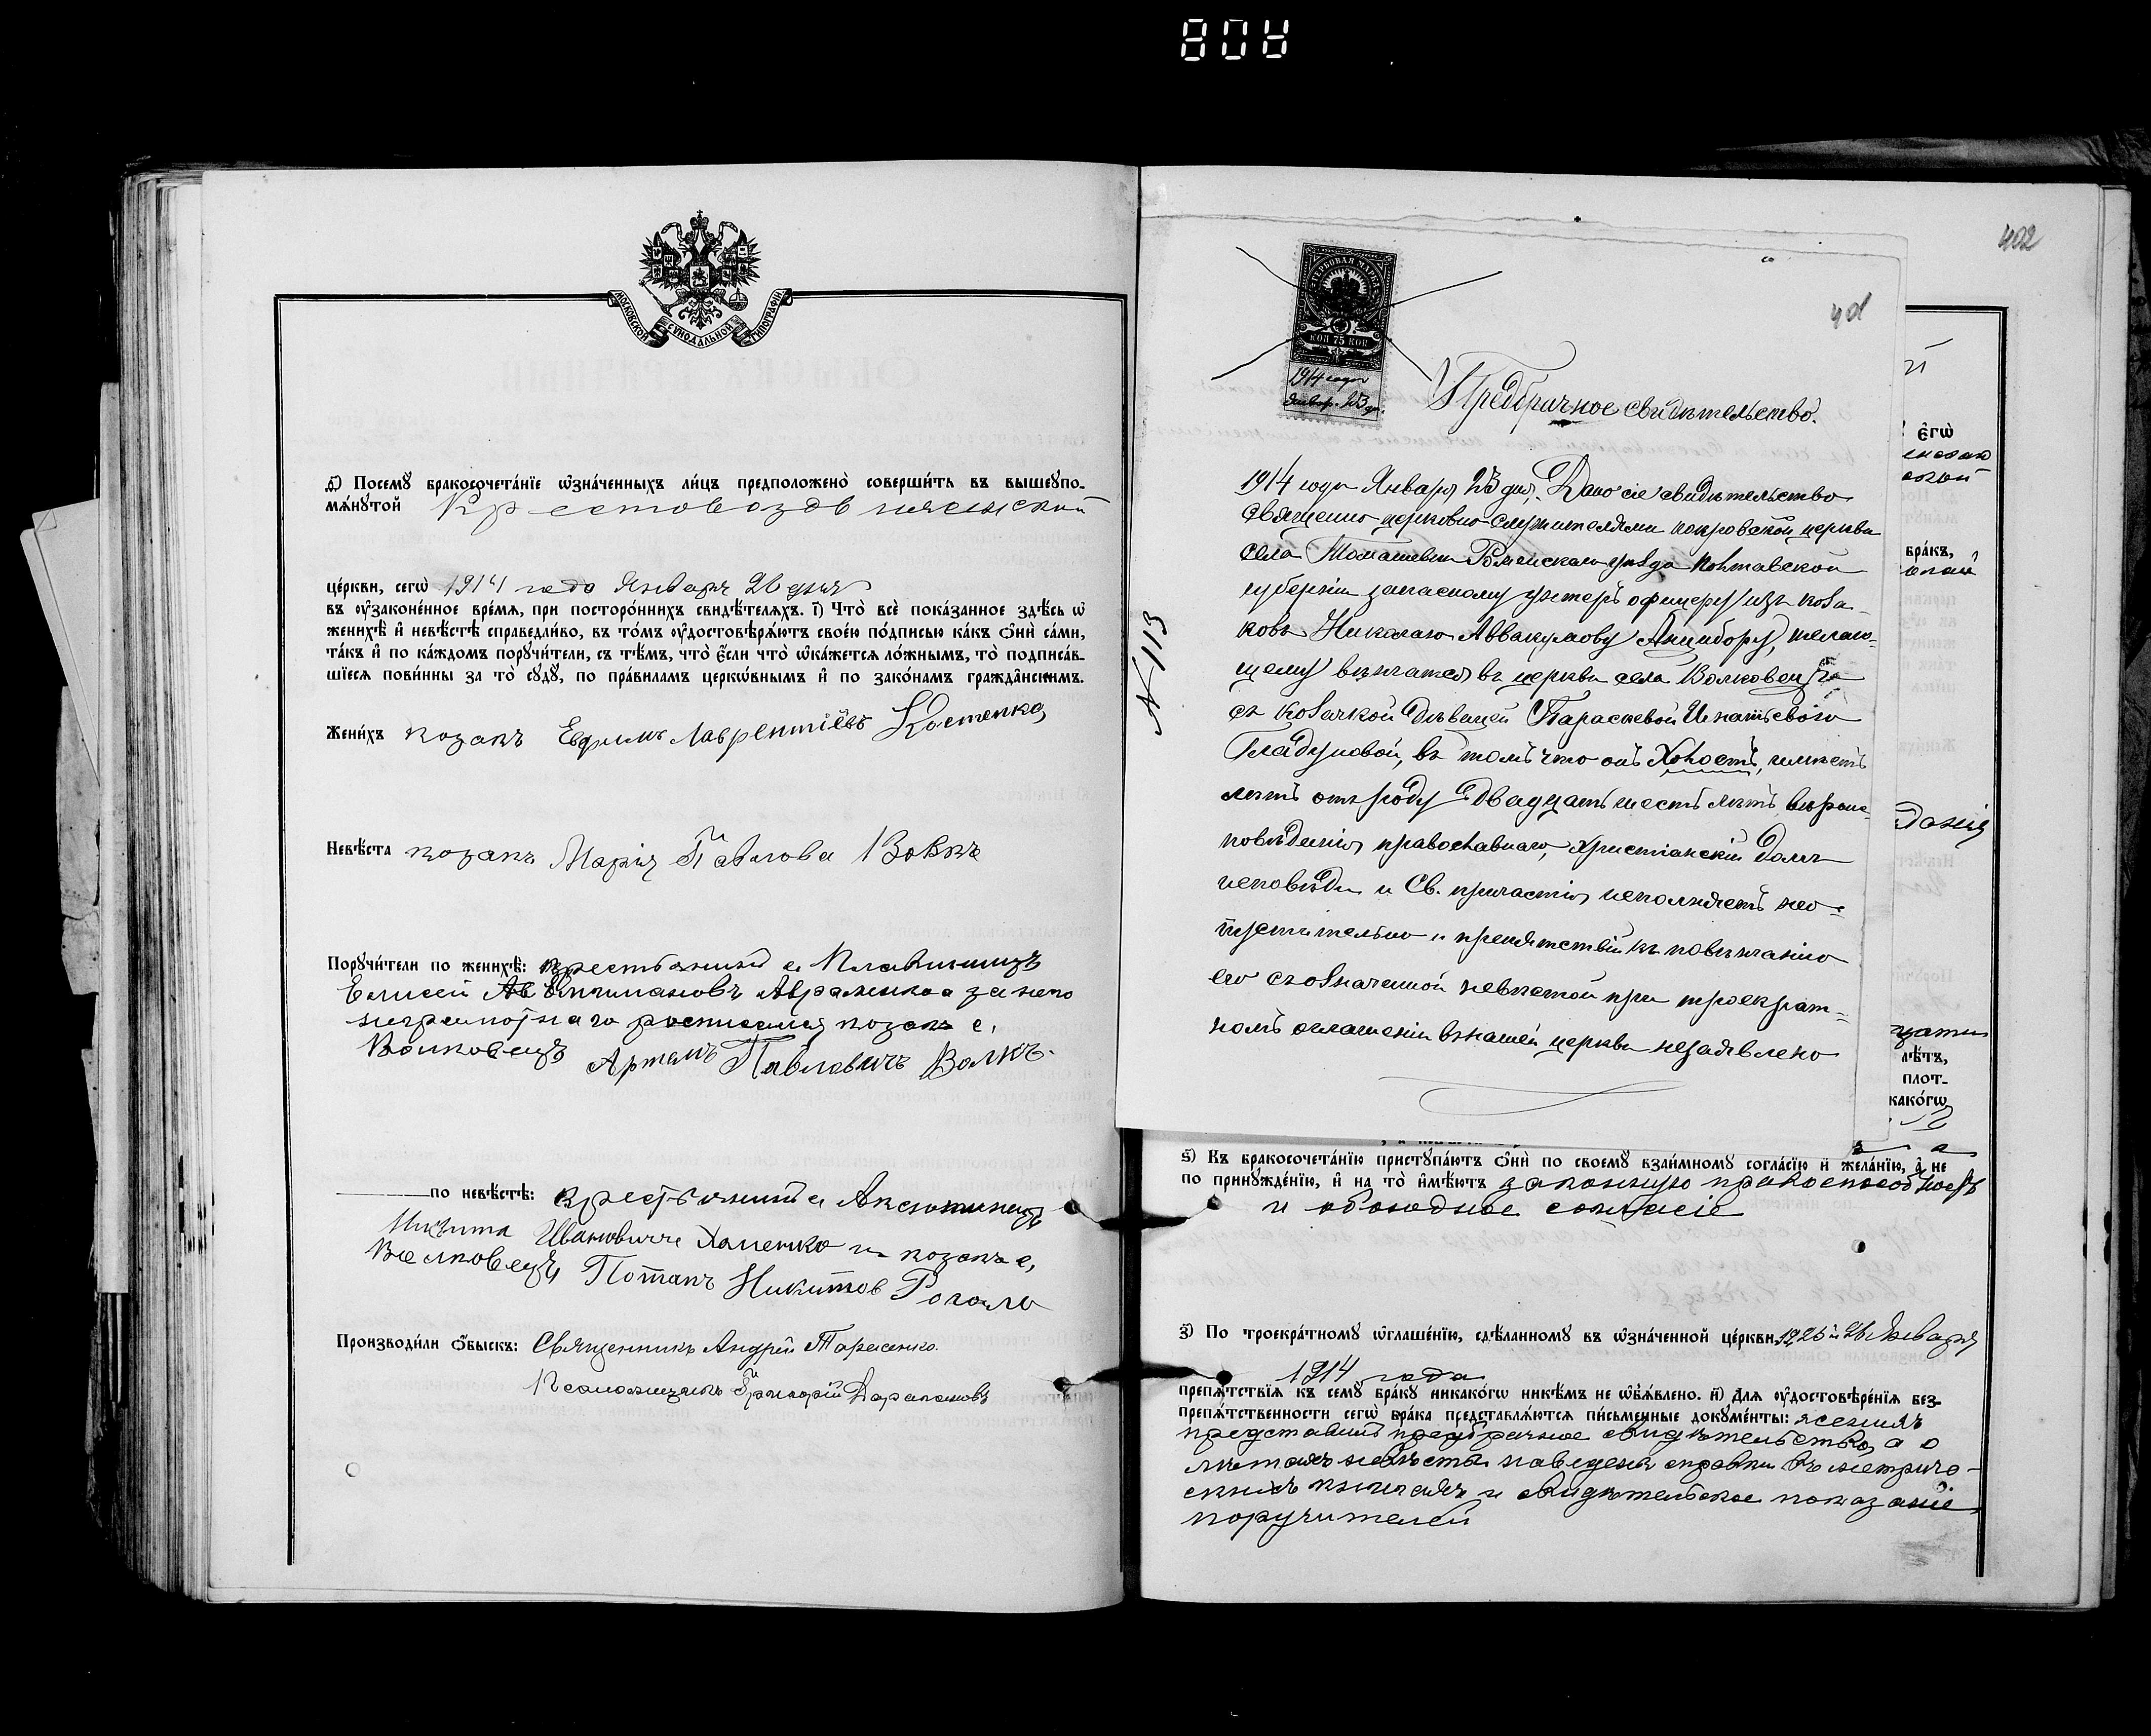 МОСКОВСКОЙ СѴНОДАЛЬНОЙ ТИПОГРАФІИ
Посемꙋ бракосочета́нїе ѡ҆зна́ченныхъ ли́цъ предположено̀ соверши́ть въ вышеꙋпо-
мѧ́нꙋтой Крестовоздвиженской
це́ркви, сегѡ̀ 1914 года Января 26 дня
въ ᲂу҆законе́нное вре́мѧ, при посторо́ннихъ свидѣ́телѧхъ. і҃) Что̀ всѐ пока́занное здѣ́сь ѡ҆
женихѣ̀ и҆ невѣ́стѣ справедли́во, въ то́мъ ᲂу҆достовѣрѧ́ютъ свое́ю по́дписью ка́къ ѻ҆нѝ са́ми,
та́къ и҆ по ка́ждомъ порꙋчи́тели, съ тѣ́мъ, что̀ є҆́сли что̀ ѡ҆ка́жетсѧ ло́жнымъ, то̀ подписа́в-
шїесѧ пови́нны за то̀ сꙋдꙋ̀, по пра́виламъ церкѡ́внымъ и҆ по зако́намъ гражда̑нскимъ.
Жени́хъ козакъ Ефимъ Лаврентіевъ Костенко
Невѣ́ста козач. Марія Павлова Вовкъ
Порꙋчи́тели по женихѣ̀: крестьянинъ с. Плавинищъ
Елисей Ав Епимановъ Авраменко а за него
неграмотнаго росписался козакъ с.
Волковецъ Артемъ Павловичъ Волкъ.
по невѣ́стѣ: крестьянинъ с. Аксютинецъ
Никита Ивановичъ Хоменко и козакъ с.
Волковецъ Потапъ Никитов Роголь
Производи́ли ѻ҆́быскъ: Священникъ Андрей Тарасенко.
Псаломщикъ Григорій
402
401
ГЕРБОВАЯ МАРКА
КОП 75 КОП
1914 года
Январ. 23 дн.
Предбрачное свидѣтельство.
№ 113
1914 года Января 23 дня. Дано сіе свидѣтельство
Священно церковно служителями Покровской церкви
села Томашевки Роменскаго уѣзда Полтавской
губерніи запасному унтеръ офицеру изъ коза-
ковъ Николаю Аввакумову Анцибору, желаю-
щему вѣнчатся въ церкви села Волковецъ
съ козачкой дѣвицей Параскевой Игнатьевою
Гладуновой, въ томъ что онъ Холостъ, имѣетъ
лѣтъ отъ роду двадцать шесть лѣтъ, вѣроис-
повѣданія православнаго, христіанскій долгъ
исповѣди и Св. причастія исполняетъ неo-
пустительно и препятствій къ повѣнчанію
его съ означенной невѣстой при троекрат-
номъ оглашеніи въ нашей церкви незаявлено
є҆гѡ̀
бра́къ,
лѣ́тъ,
плот-
како́гѡ
ѕ҃) Къ бракосочета́нїю пристꙋпа́ютъ ѻ҆нѝ по своемꙋ̀ взаи́мномꙋ согла́сїю и҆ жела́нїю, а҆ не
по принꙋжде́нїю, и҆ на то̀ и҆мѣ́ютъ законную правоспособность
и обоюдное согласіе
з҃) По троекра́тномꙋ ѡ҆глаше́нїю, сдѣ́ланномꙋ въ ѡ҆зна́ченной це́ркви, 19, 25 и 26 Января
1914 года
препѧ́тствїѧ къ семꙋ̀ бра́кꙋ никако́гѡ никѣ́мъ не ѡ҆б̾ѧ́влено. и҃) Длѧ ᲂу҆достовѣре́нїѧ без-
препѧ́тственности сегѡ̀ бра́ка представлѧ́ютсѧ пи́сьменные докꙋме́нты: женихъ
представилъ предбрачное свидѣтельство, а о
лѣтахъ невѣсты наведены справки въ метриче-
скихъ книгахъ и свидѣтельское показаніе
поручителей